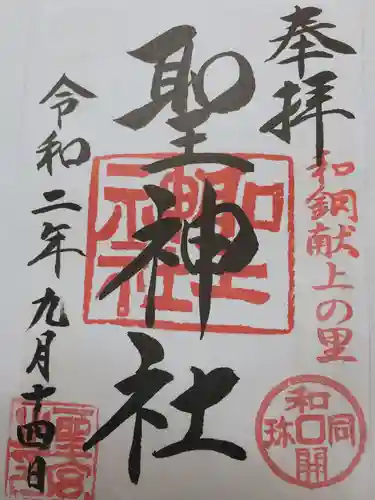 奉拝
和銅献上の里
聖神社
令和二年九月十四日
聖神社
和同開珎
聖宮